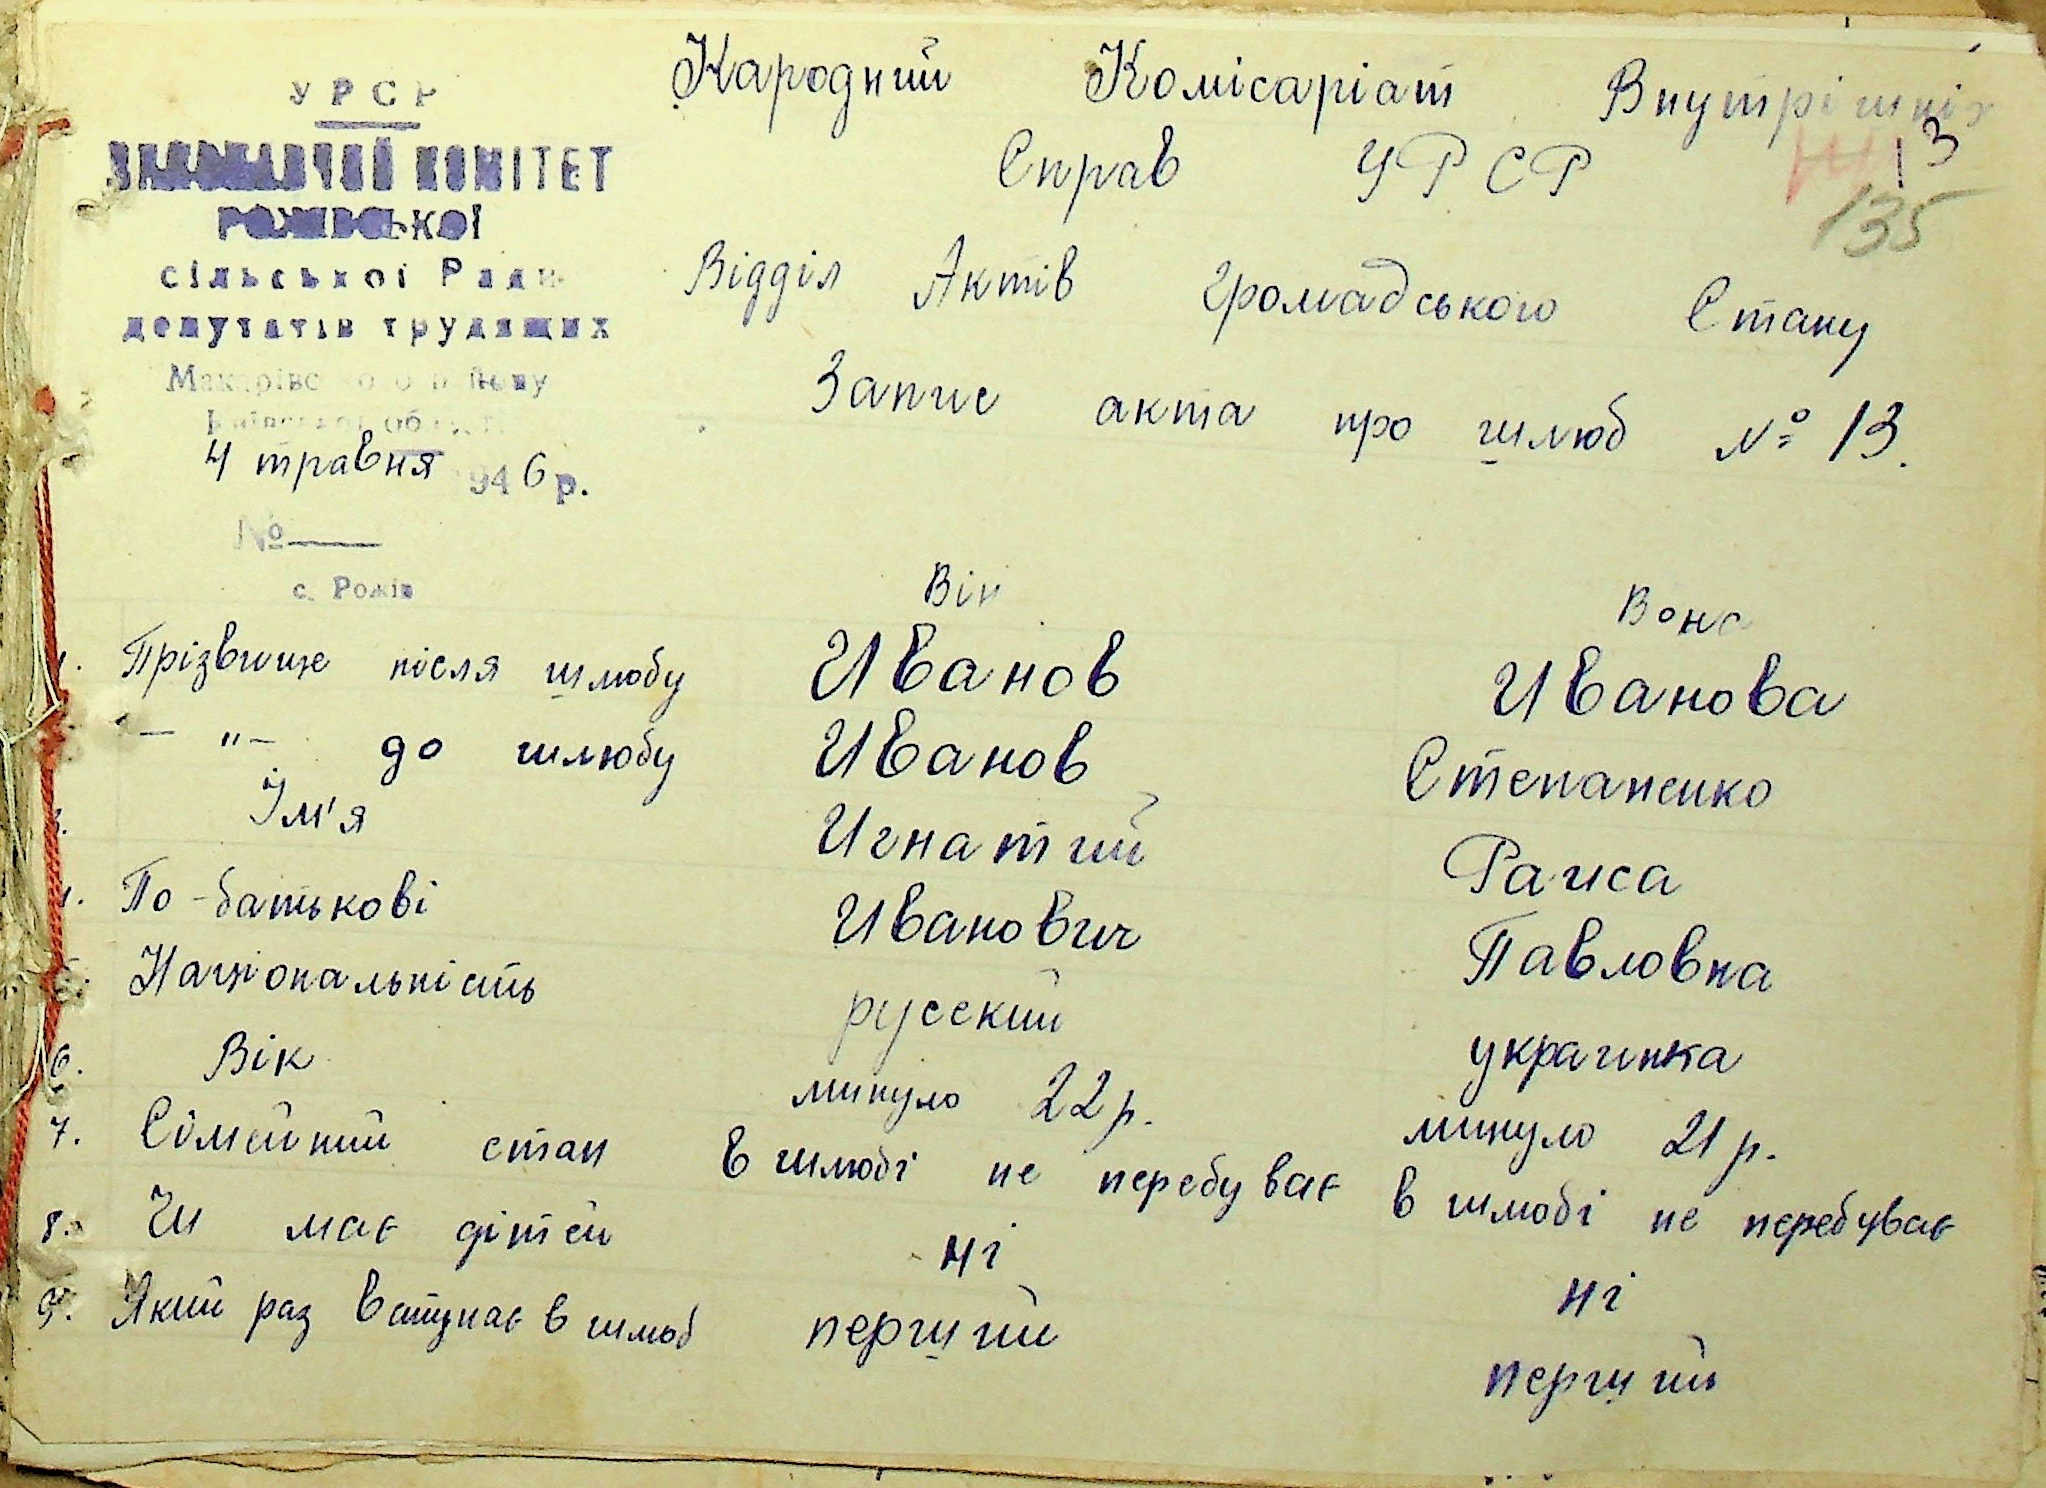 УРСР
ВИКОНАВЧИЙ КОМІТЕТ
РОЖІВСЬКОЇ
сільської Ради
депутатів трудящих
Макарівського району
Київської області
4 травня 1946 р.
№
с. Рожів
Народний Комісаріат Внутрішніх
Справ УРСР
13
135
Відділ Актів Громадського Стану
Запис акта про шлюб № 13.
Він Вона
1. Прізвище після шлюбу Иванов Иванова
–"– до шлюбу Иванов Степаненко
3. Ім'я Игнатий Раиса
4. По-батькові Иванович Павловна
5. Національність русский украинка
6. Вік минуло 22 р. минуло 21 р.
7. Сімейний стан в шлюбі не перебуває в шлюбі не перебуває
8. Чи має дітей ні ні
9. Який раз вступає в шлюб перший перший